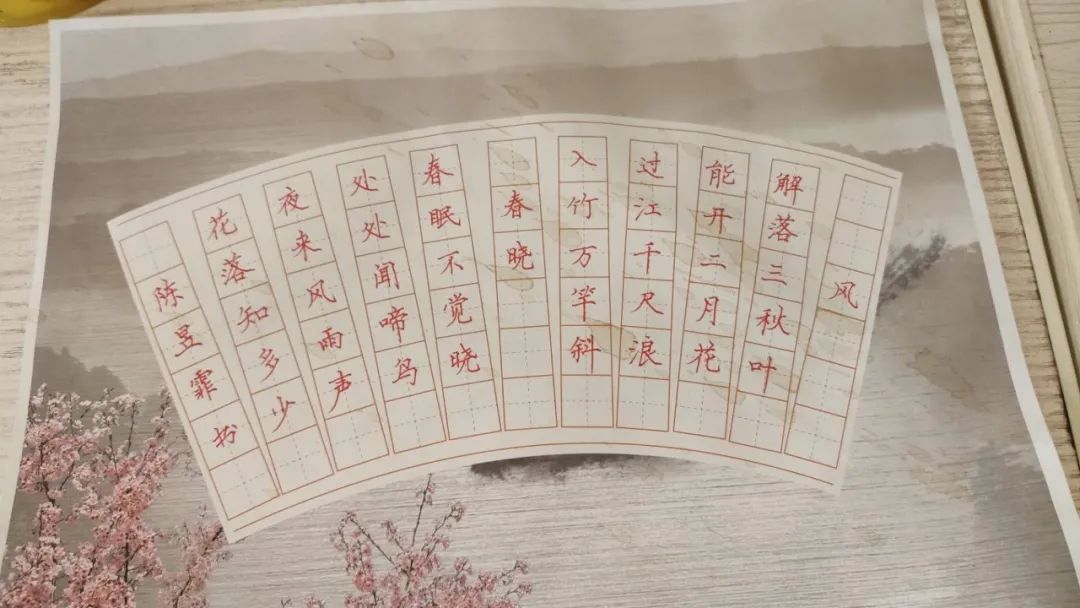 风
解落三秋叶
能开二月花
过江千尺浪
入竹万竿斜
春晓
春眠不觉晓
处处闻啼鸟
夜来风雨声
花落知多少
陈昱霏书